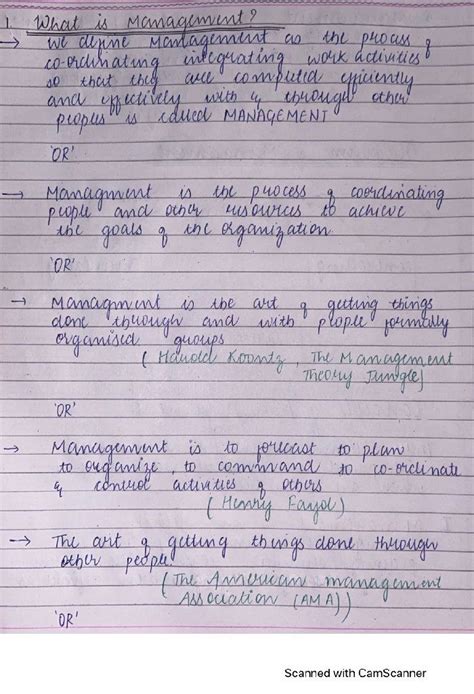 1. What is Management?
→ We define Management as the process of
co-ordinating integrating work activities
so that they are computed efficiently
and effectively with & through other
peoples is called MANAGEMENT
'OR'
→ Managment is the process of coordinating
people and other resources to achieve
the goals of the organization
'OR'
→ Managment is the art of getting things
done through and with people formally
organised groups
( Harold Koontz, The Management
Theory Jungle)
'OR'
→ Management is to forecast to plan
to organize, to command to co-ordinate
& control activities of others
( Henry Fayol )
→ The art of getting things done through
other people.
( The American management
Association (AMA))
'OR'
Scanned with CamScanner